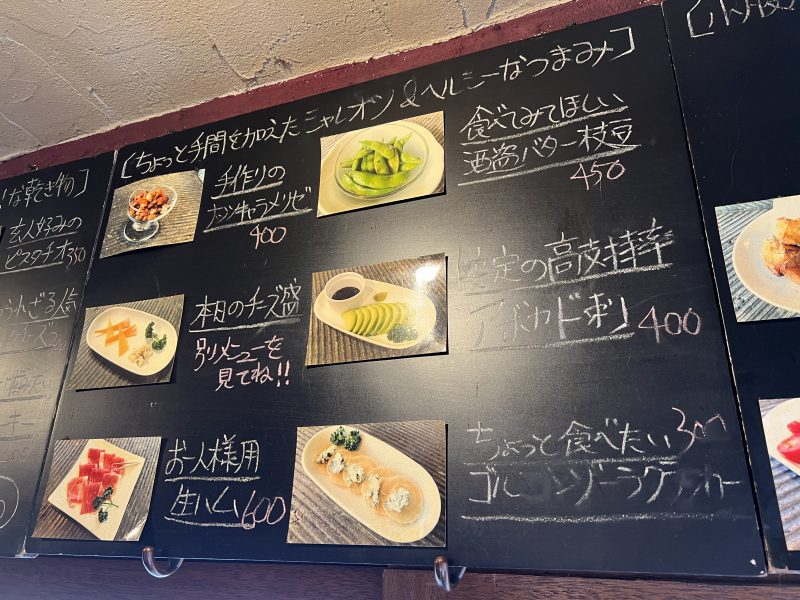 な乾き物]
玄人好みの
ピスタチオ350
[ちょっと手間を加えた シャレオツ&ヘルシーなつまみ]
手作りの
ナッツキャラメリゼ
400
食べてみてほしい
酒盗バター枝豆
450
本日のチーズ盛
別メニューを
見てね!!
安定の高支持率
アボカド刺 400
お一人様用
生ハム600
ちょっと食べたい300
ゴルゴンゾーラ